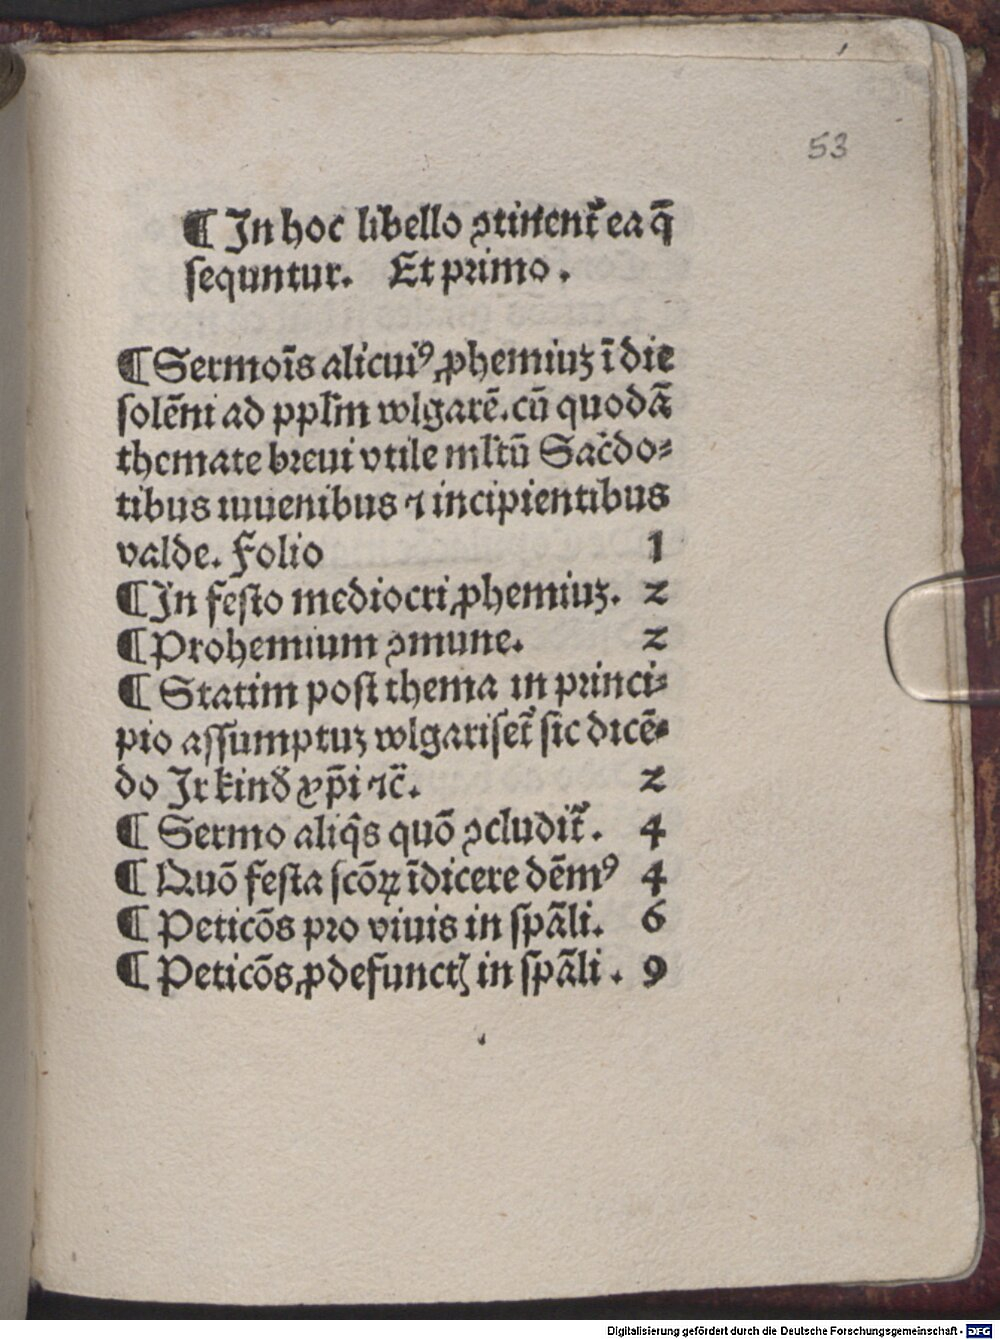 53
¶ In hoc libello ꝯtinent᷑ ea q̄
sequntur. Et primo.
¶ Sermoīs alicuiꝰ ꝓhemiuꝫ ī die
solēni ad pplm̄ wlgarē. cū quodā
themate breui vtile ml̄tū Sac̄do⸗
tibus iuuenibus ⁊ incipientibus
valde. Folio 1
¶ In festo mediocri ꝓhemiuꝫ. 2
¶ Prohemium ꝯmune. 2
¶ Statim post thema in princi⸗
pio assumptuꝫ wlgariset᷑ sic dicē⸗
do Ir kind̄ xp̄i ⁊c̄. 2
¶ Sermo aliq̄s quō ꝯcludit᷑. 4
¶ Quō festa scōꝝ īdicere dēmꝰ 4
¶ Peticōs pro viuis in sp̄āli. 6
¶ Peticōs ꝓ defunctꝭ in sp̄āli. 9
Digitalisierung gefördert durch die Deutsche Forschungsgemeinschaft - DFG